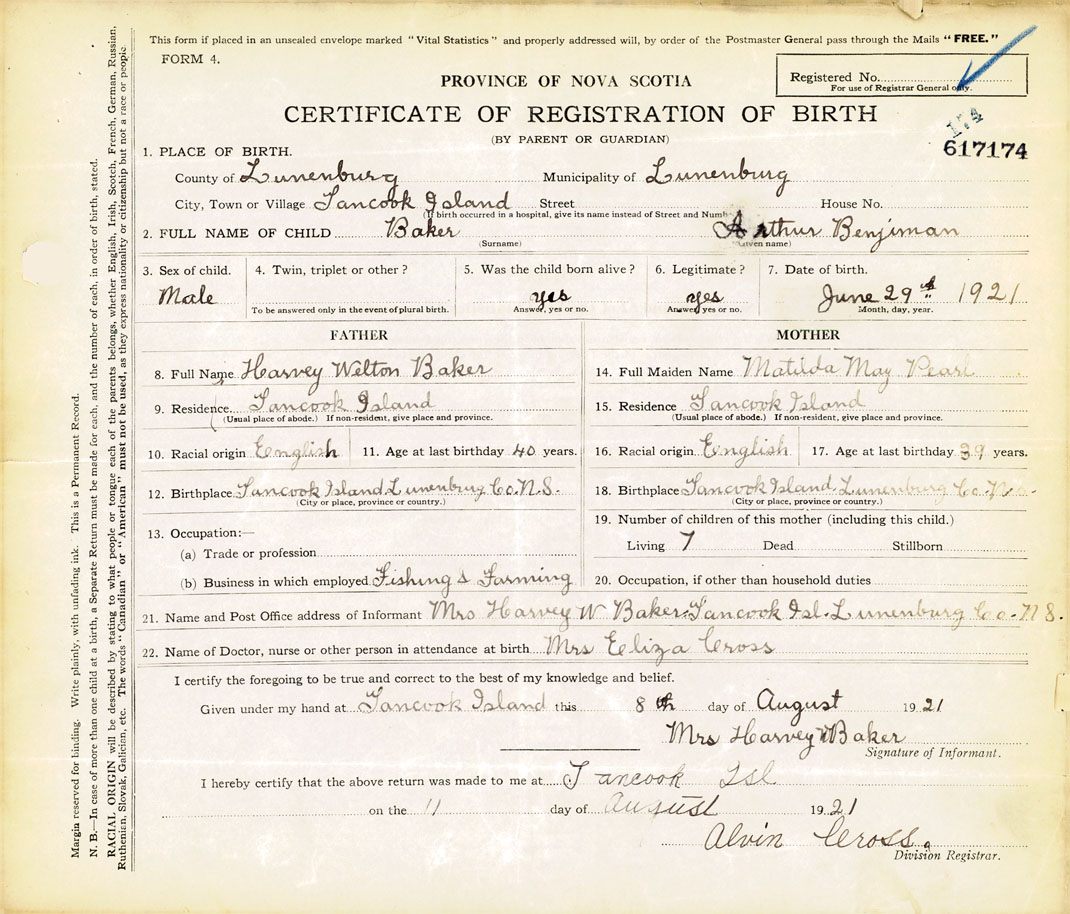 This form if placed in an unsealed envelope marked "Vital Statistics" and properly addressed will, by order of the Postmaster General pass through the Mails "FREE."
FORM 4.
Registered No.
For use of Registrar General only.
PROVINCE OF NOVA SCOTIA
CERTIFICATE OF REGISTRATION OF BIRTH
(BY PARENT OR GUARDIAN)
174
617174
1. PLACE OF BIRTH.
County of Lunenburg Municipality of Lunenburg
City, Town or Village Tancook Island Street House No.
(If birth occurred in a hospital, give its name instead of Street and Numb
2. FULL NAME OF CHILD Baker Arthur Benjiman
(Surname) (Given name)
3. Sex of child. 4. Twin, triplet or other? 5. Was the child born alive? 6. Legitimate? 7. Date of birth.
Male yes yes June 29th 1921
To be answered only in the event of plural birth. Answer, yes or no. Answer, yes or no. Month, day, year.
FATHER
8. Full Name Harvey Welton Baker
9. Residence Tancook Island
(Usual place of abode.) If non-resident, give place and province.
10. Racial origin English 11. Age at last birthday 40 years.
12. Birthplace Tancook Island Lunenburg Co. N.S.
(City or place, province or country.)
13. Occupation:—
(a) Trade or profession
(b) Business in which employed Fishing & Farming
MOTHER
14. Full Maiden Name Matilda May Pearl
15. Residence Tancook Island
(Usual place of abode.) If non-resident, give place and province.
16. Racial origin English 17. Age at last birthday 39 years.
18. Birthplace Tancook Island Lunenburg Co. N.S.
(City or place, province or country.)
19. Number of children of this mother (including this child.)
Living 7 Dead Stillborn
20. Occupation, if other than household duties
21. Name and Post Office address of Informant Mrs Harvey W Baker Tancook Isl. Lunenburg Co. N.S.
22. Name of Doctor, nurse or other person in attendance at birth Mrs Eliza Cross
I certify the foregoing to be true and correct to the best of my knowledge and belief.
Given under my hand at Tancook Island this 8th day of August 1921
Mrs Harvey W Baker
Signature of Informant.
I hereby certify that the above return was made to me at Tancook Isl
on the 11 day of August 1921
Alvin Cross.
Division Registrar.
Margin reserved for binding. Write plainly, with unfading ink. This is a Permanent Record.
N. B.—In case of more than one child at a birth, a Separate Return must be made for each, and the number of each, in order of birth, stated.
RACIAL ORIGIN will be described by stating to what people or tongue each of the parents belongs, whether English, Irish, Scotch, French, German, Russian,
Ruthenian, Slovak, Galician, etc. The words "Canadian" or "American" must not be used, as they express nationality or citizenship but not a race or people.